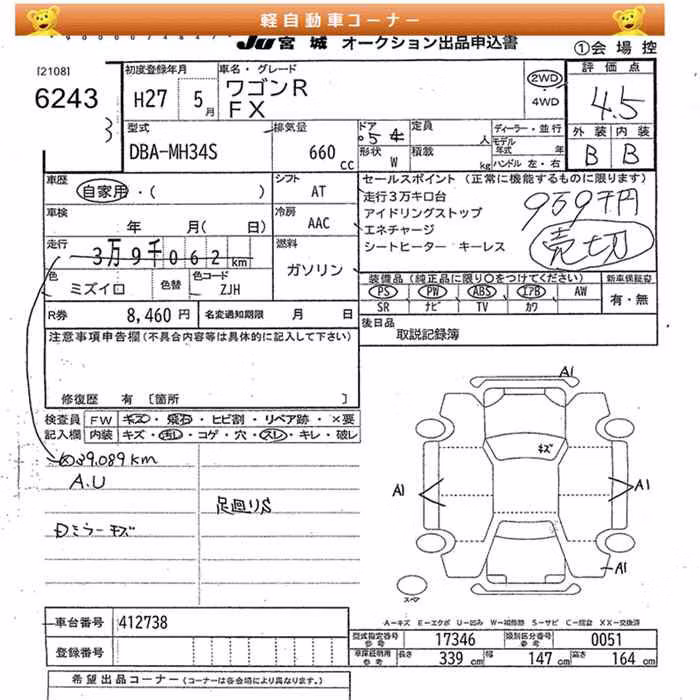 軽自動車コーナー
JU宮城 オークション出品申込書
①会場控
[2108]
6243
初度登録年月
H27 5月
車名・グレード
ワゴンR
FX
2WD
・4WD
評価点
4.5
外装 内装
B B
型式
DBA-MH34S
排気量
660 cc
ドア
5
形状 W
定員 人
積載 kg
ディーラー・並行
モデル年式 年
ハンドル 左・右
車歴
自家用・( )
シフト
AT
車検
年 月( 日)
冷房
AAC
走行
3万9千062km
燃料
ガソリン
色
ミズイロ
色替
色コード
ZJH
R券 8,460円
名変通知期限 月 日
セールスポイント (正常に機能するものに限ります)
走行3万キロ台
アイドリングストップ
エネチャージ
シートヒーター キーレス
959千円
売切
装備品 (純正品に限り○をつけてください)
PS PW ABS エアB AW
SR ナビ TV カワ
新車保証書
有・無
後日品
取説記録簿
注意事項申告欄(不具合内容等は具体的に記入して下さい)
修復歴 有 〔箇所 〕
検査員 FW キズ・飛石・ヒビ割・リペア跡・×要
記入欄 内装 キズ・汚レ・コゲ・穴・スレ・キレ・破レ
39.089km
A.U
足廻りS
Dミラーキズ
A1
キズ
A1
A1
A1
スペア
車台番号 412738
登録番号
A-キズ E-エクボ U-凹み W-補修跡 S-サビ C-腐食 XX-交換済
型式指定番号 参考 17346
類別区分番号 参考 0051
車庫証明用 参考 長さ 339cm 幅 147cm 高さ 164cm
希望出品コーナー (コーナーは各会場により異なります。)